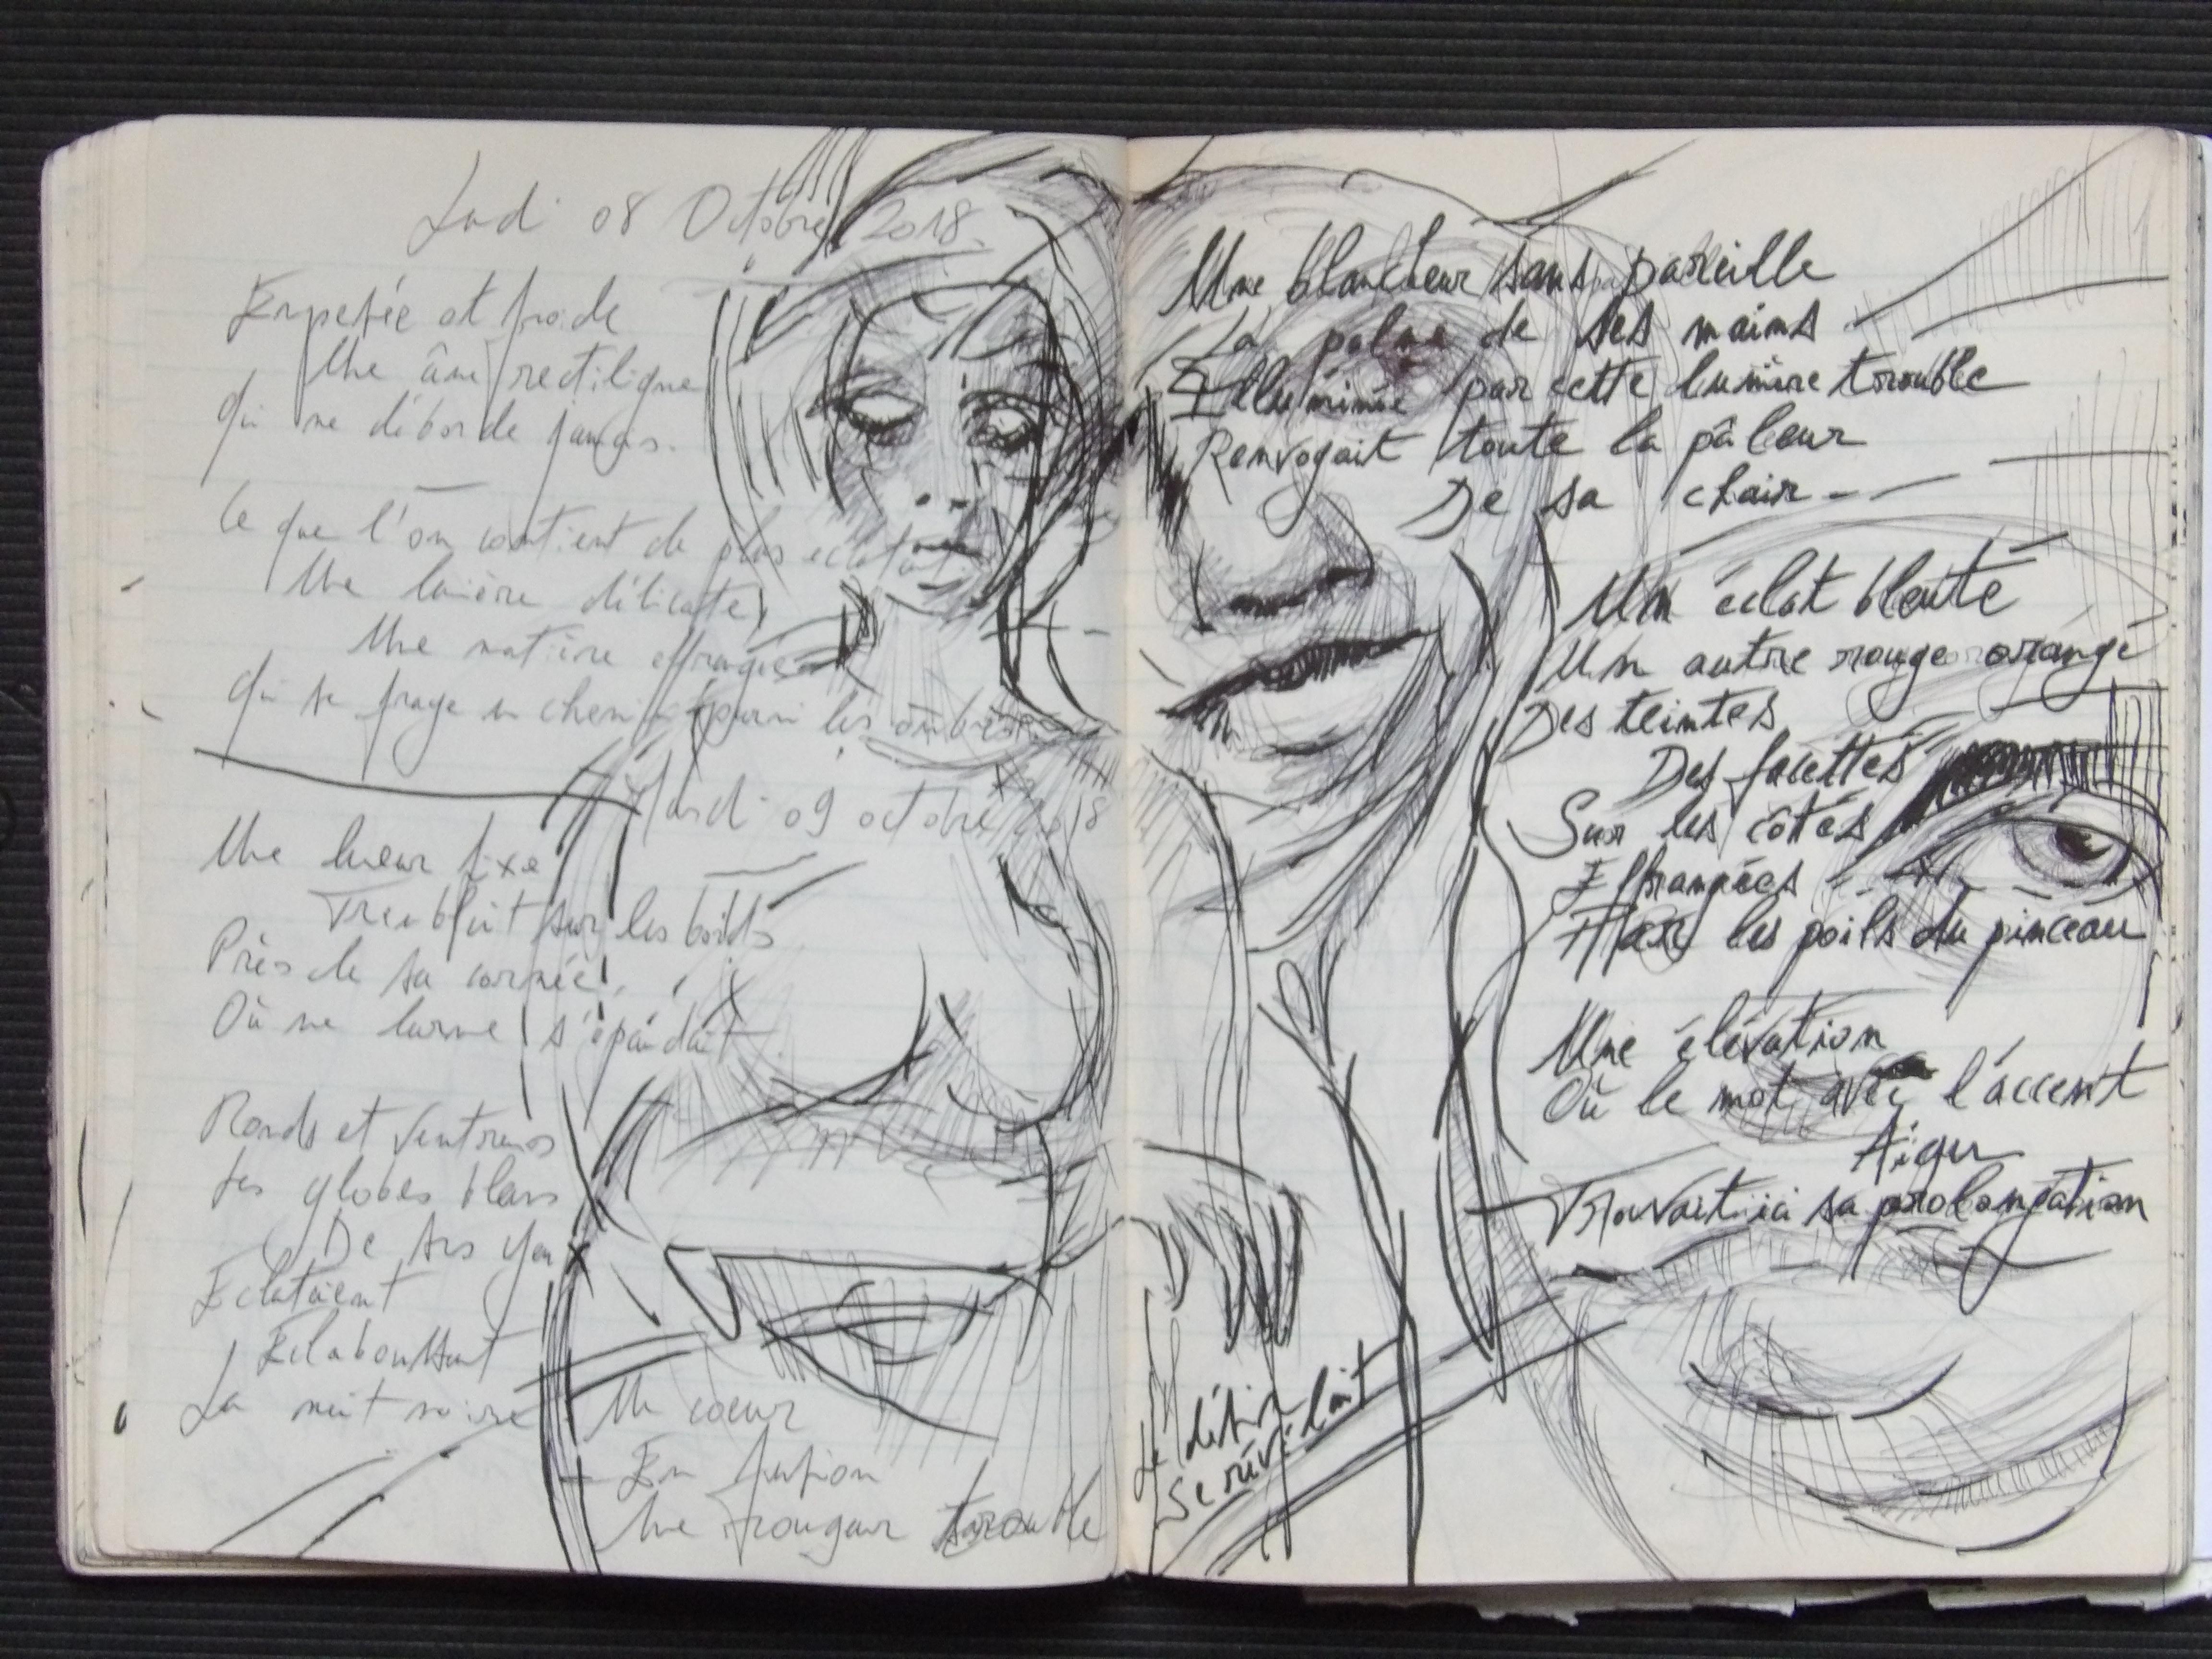 Lundi 08 Octobre 2018.
Empesée et froide
Une âme rectiligne
Qui ne déborde jamais.
Ce que l'on contient de plus eclatant
Une lumière délicate,
Une matière effrangée
Qui se fraye un chemin parmi les ombres
Mardi 09 octobre 2018
Une lueur fixe
Tremblait sur les bords
Près de sa cornée,
Où une larme s'épandait.
Ronds et ventreux
Les globes blancs
De ses yeux
Eclataient
Eclaboussant
La nuit noire
Un coeur
En fusion
Une rougeur trouble
Une blancheur sans pareille
La palme de ses mains
Illuminée par cette lumière trouble
Renvoyait toute la pâleur
De sa chair
Un éclat bleuté
Un autre rouge orangé
Des teintes
Des facettes
Sur les côtés
Effrangées
Par les poils du pinceau
Une élévation
Où le mot avec l'accent
Aigu
Trouvait ici sa prolongation
Le désir
Se révélait